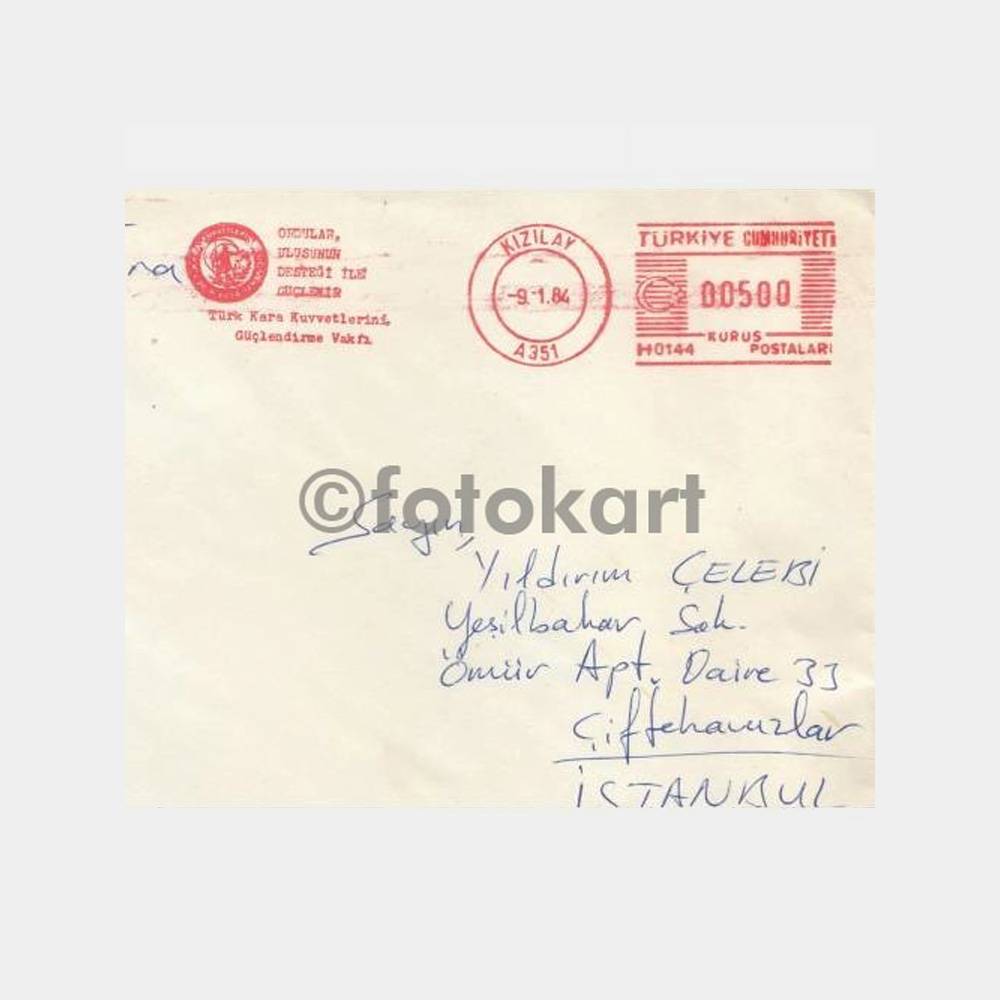 ORDULAR,
ULUSUNUN
DESTEĞİ İLE
GÜÇLENİR
Türk Kara Kuvvetlerini,
Güçlendirme Vakfı
KIZILAY
-9.-1.84
A351
TÜRKİYE CUMHURİYETİ
00500
KURUŞ
H0144 POSTALARI
na
©fotokart
Sayın,
Yıldırım ÇELEBİ
Yeşilbahar Sok.
Ömür Apt. Daire 33
Çiftehavuzlar
İSTANBUL